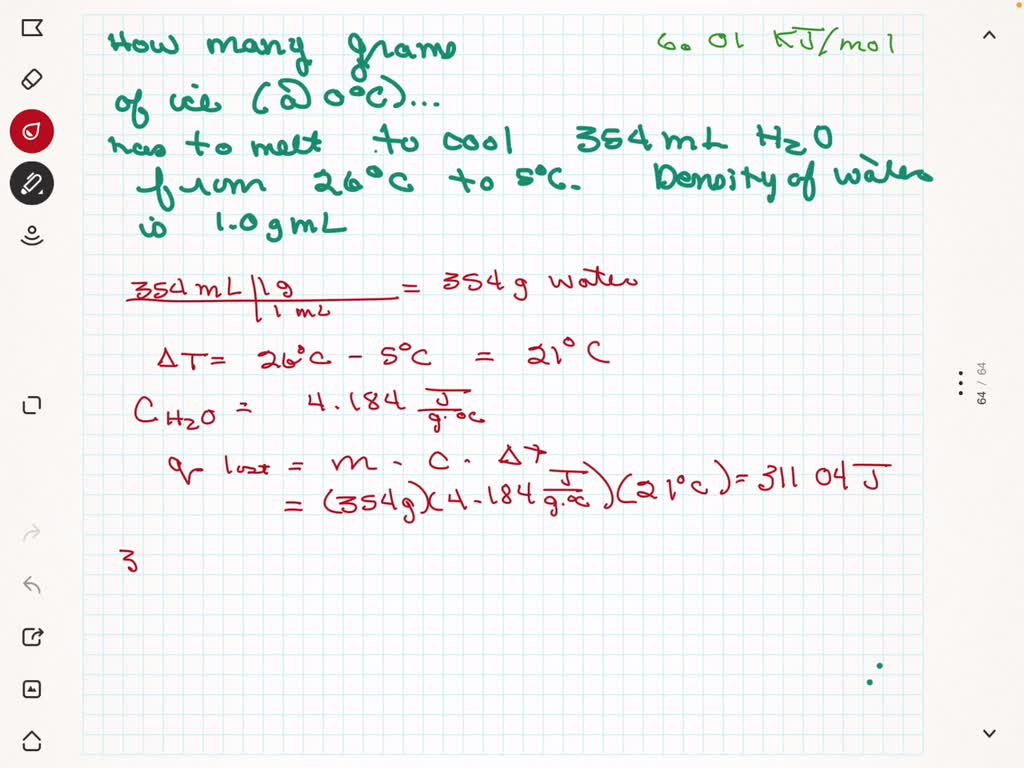 How many grams 6.01 KJ/mol
of ice (@ 0°C)...
has to melt to cool 354 mL H2O
from 26°C to 5°C. Density of water
is 1.0 g mL
354 mL | 1 g = 354 g water
1 mL
ΔT = 26°C - 5°C = 21°C
C H2O = 4.184 J/g·°C
q lost = m · c · Δt
= (354g)(4.184 J/g·°C)(21°C) = 31104 J
3
64 / 64